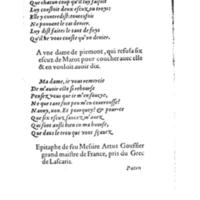 Que chacun coup qu'il luy faisoit
Luy coustoit deux escuz au troys:
Elle y contendist toutesfois
Ne pouuant le cas denier.
Luy dist, prenez en donc six foys
Qu'il ne vous couste qu'un denier.
A vne dame de piemont, qui refusa six
escuz de Marot pour coucher auec elle
& en vouloit auoir dix.
Ma dame, ie vous remercie
De m'auoir esté si rebourse
Pensez vous que ie m'en soucye,
Ne que tant soit peu m'en courrousse?
Nenny, non. Et pourquoy? pource
Que six escuz sauuez m'auez
Qui sont aussi bien en ma bourse,
Que dans le trou que vous sçauez.
Epitaphe de feu Messire Artus Gouffier
grand maistre de France, pris du Grec
de Lascaris.